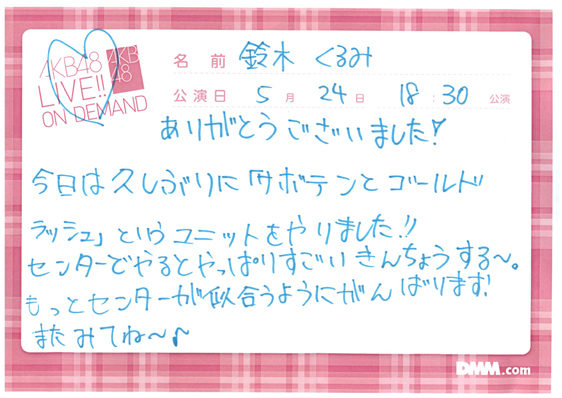 AKB48
LIVE!!
ON DEMAND
AKB
48
名 前 鈴木 くるみ
公演日 5 月 24 日 18 : 30 公演
ありがとうございました!
今日は久しぶりに「サボテンとゴールド
ラッシュ」というユニットをやりました!!
センターでやるとやっぱりすごいきんちょうする〜。
もっとセンターが似合うようにがんばります!
またみてね〜♪
DMM.com